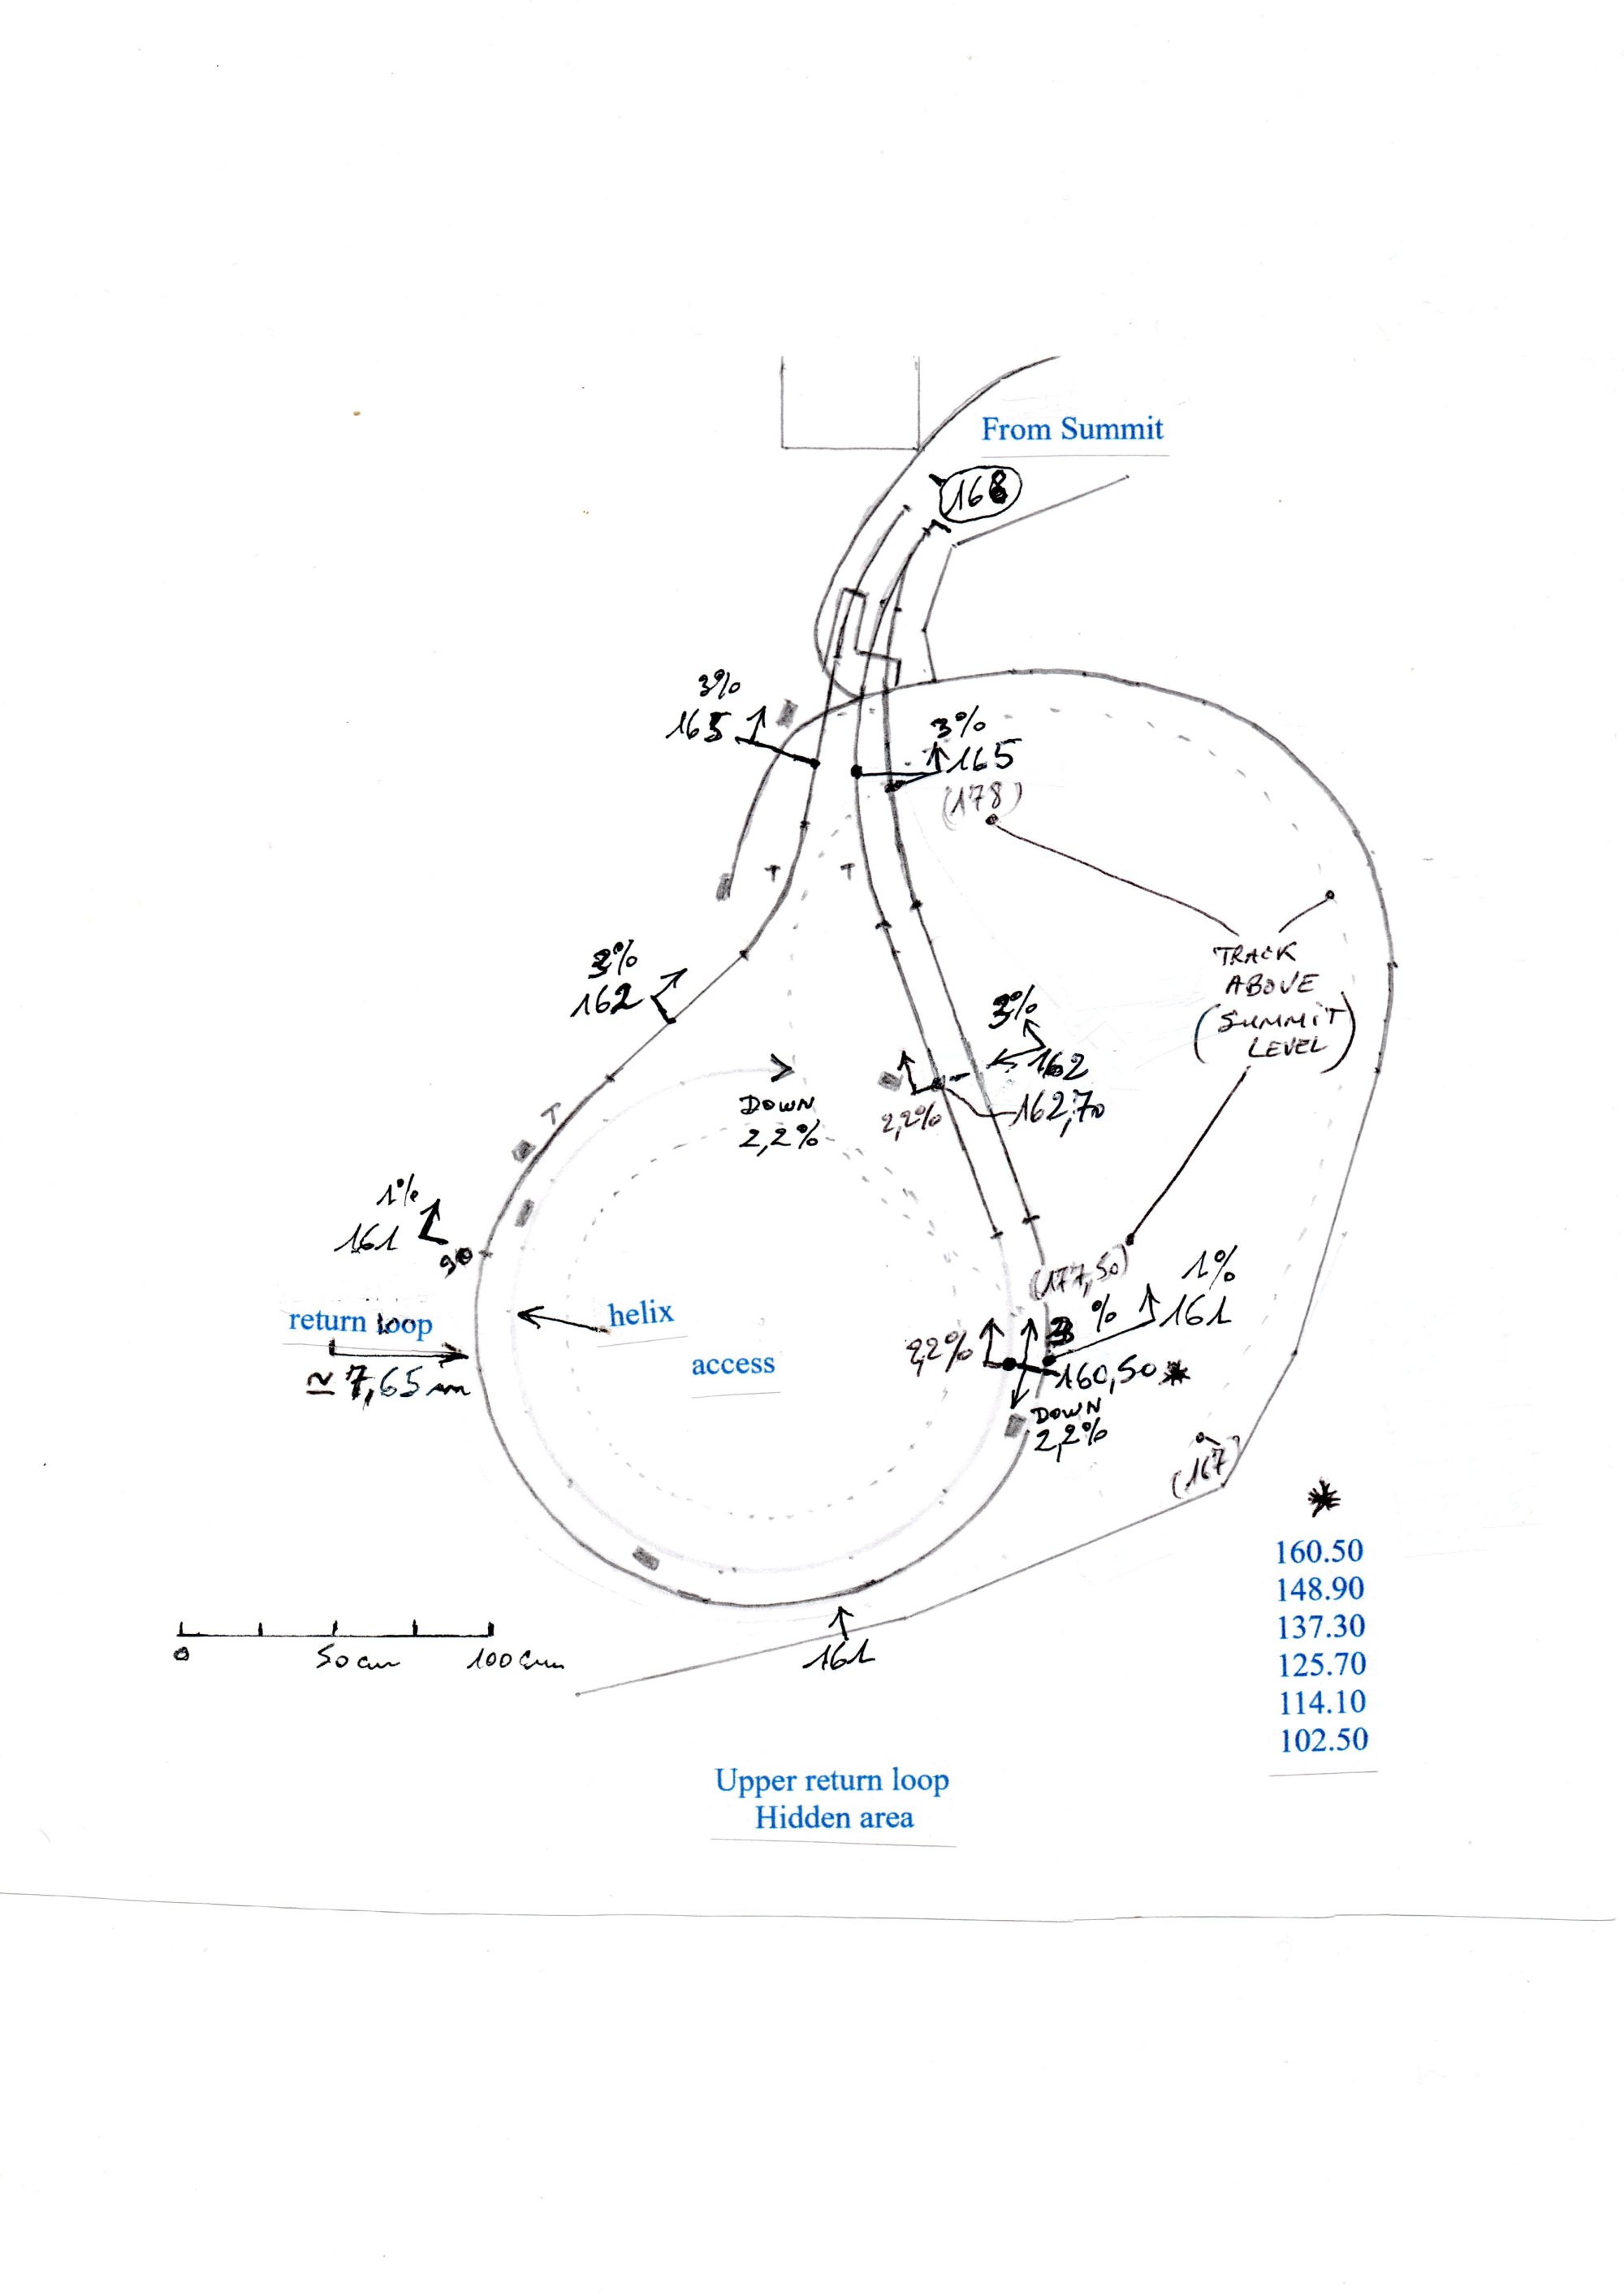 From Summit
168
3%
165
3%
165
(178)
TRACK
ABOVE
(SUMMIT)
LEVEL
3%
162
3%
162
162,70
2,2%
DOWN
2,2%
T
T
T
1%
161
90
return loop
≃ 7,65 m
helix
access
(177,50)
1%
161
%
2,2%
160,50 *
DOWN
2,2%
(167)
*
160.50
148.90
137.30
125.70
114.10
102.50
0
50 cm
100 cm
161
Upper return loop
Hidden area